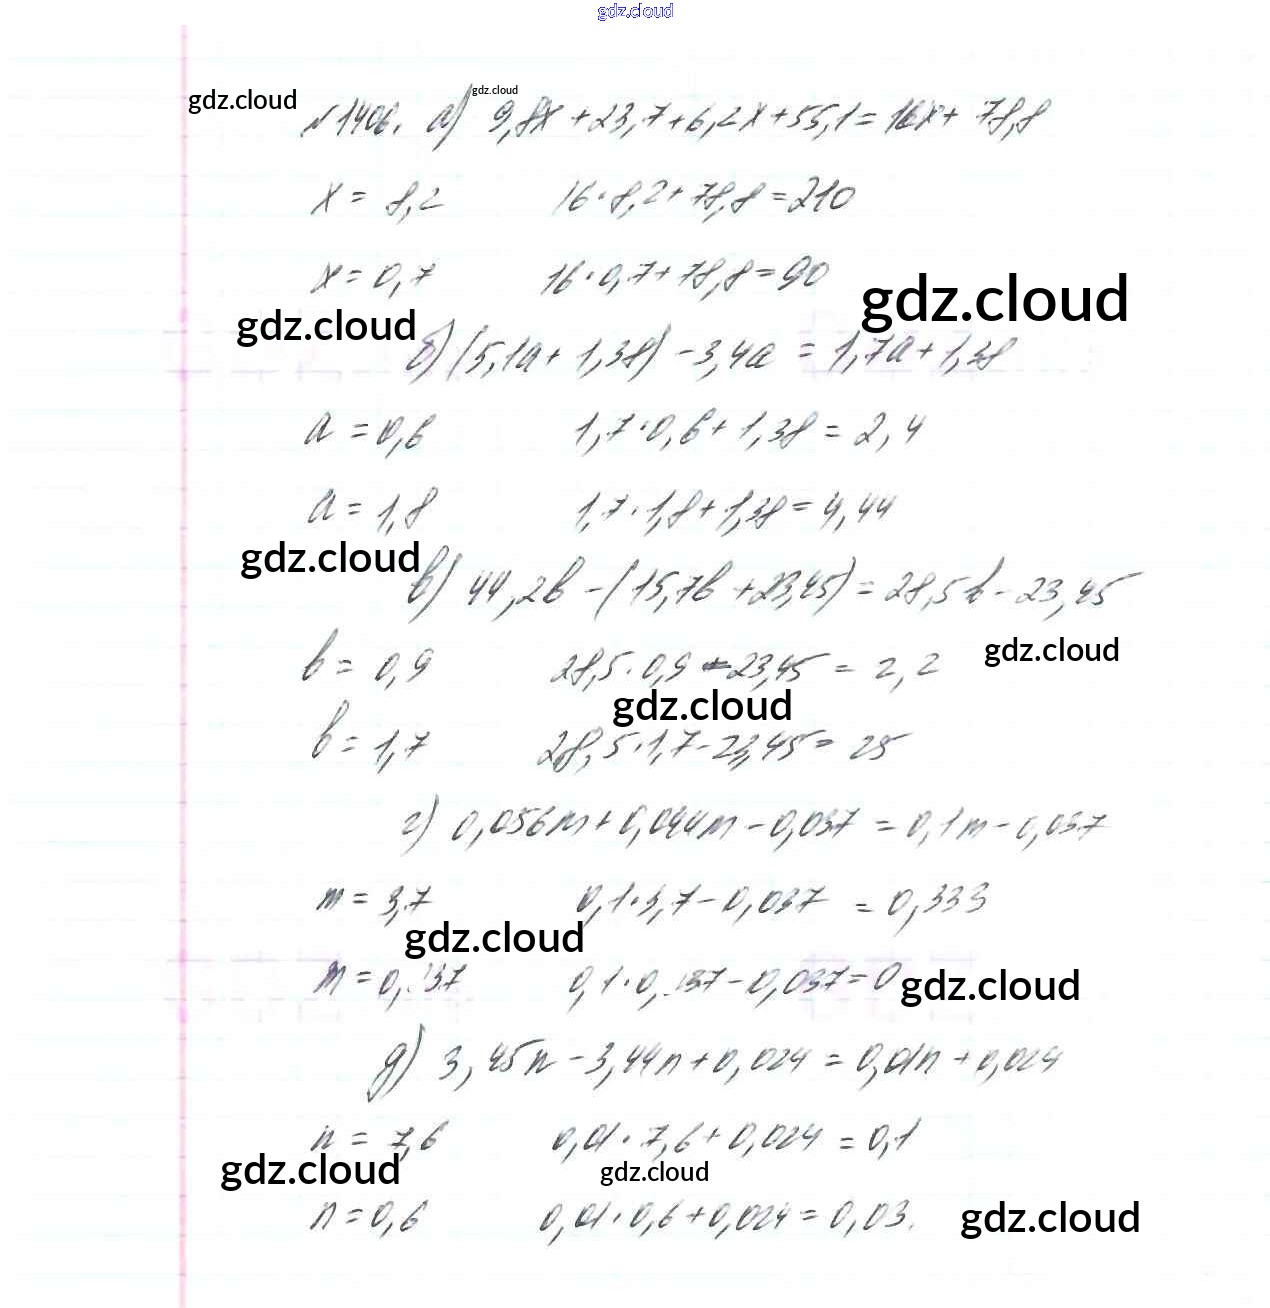 gdz.cloud
gdz.cloud
gdz.cloud
№1406. а) 9,8x + 23,7 + 6,2x + 55,1 = 16x + 78,8
x = 8,2 16·8,2 + 78,8 = 210
x = 0,7 16·0,7 + 78,8 = 90
gdz.cloud
gdz.cloud
б) (5,1a + 1,38) - 3,4a = 1,7a + 1,38
a = 0,6 1,7·0,6 + 1,38 = 2,4
a = 1,8 1,7·1,8 + 1,38 = 4,44
gdz.cloud
в) 44,2b - (15,7b + 23,45) = 28,5b - 23,45
b = 0,9 28,5·0,9 - 23,45 = 2,2
gdz.cloud
gdz.cloud
b = 1,7 28,5·1,7 - 23,45 = 25
г) 0,056m + 0,044m - 0,037 = 0,1m - 0,037
m = 3,7 0,1·3,7 - 0,037 = 0,333
gdz.cloud
m = 0,37 0,1·0,37 - 0,037 = 0
gdz.cloud
д) 3,45n - 3,44n + 0,024 = 0,01n + 0,024
n = 7,6 0,01·7,6 + 0,024 = 0,1
gdz.cloud
gdz.cloud
n = 0,6 0,01·0,6 + 0,024 = 0,03.
gdz.cloud